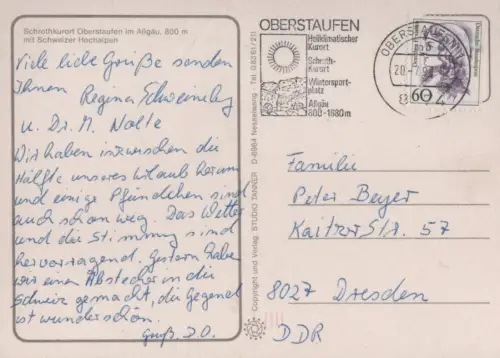 Schrothkurort Oberstaufen im Allgäu, 800 m
mit Schweizer Hochalpen
Viele liebe Grüße senden
Ihnen
Regina
u. Dr. M. Nolte
Wir haben inzwischen die
Hälfte unseres Urlaub herum
und einige Pfündchen sind
auch schon weg. Das Wetter
und die Stimmung sind
hervorragend. Gestern haben
wir einen Abstecher in die
Schweiz gemacht, die Gegend
ist wunderschön.
Gruß. D.O.
Copyright und Verlag: STUDIO TANNER
D-8964 Nesselwang · Tel. 08361/211
OBERSTAUFEN
Heilklimatischer
Kurort
Schroth-
Kurort
Wintersport-
platz
Allgäu
800-1680m
OBERSTAUFEN
20.-7.9
60
Familie
Peter Beyer
Kaitzer Str. 57
8027 Dresden
DDR